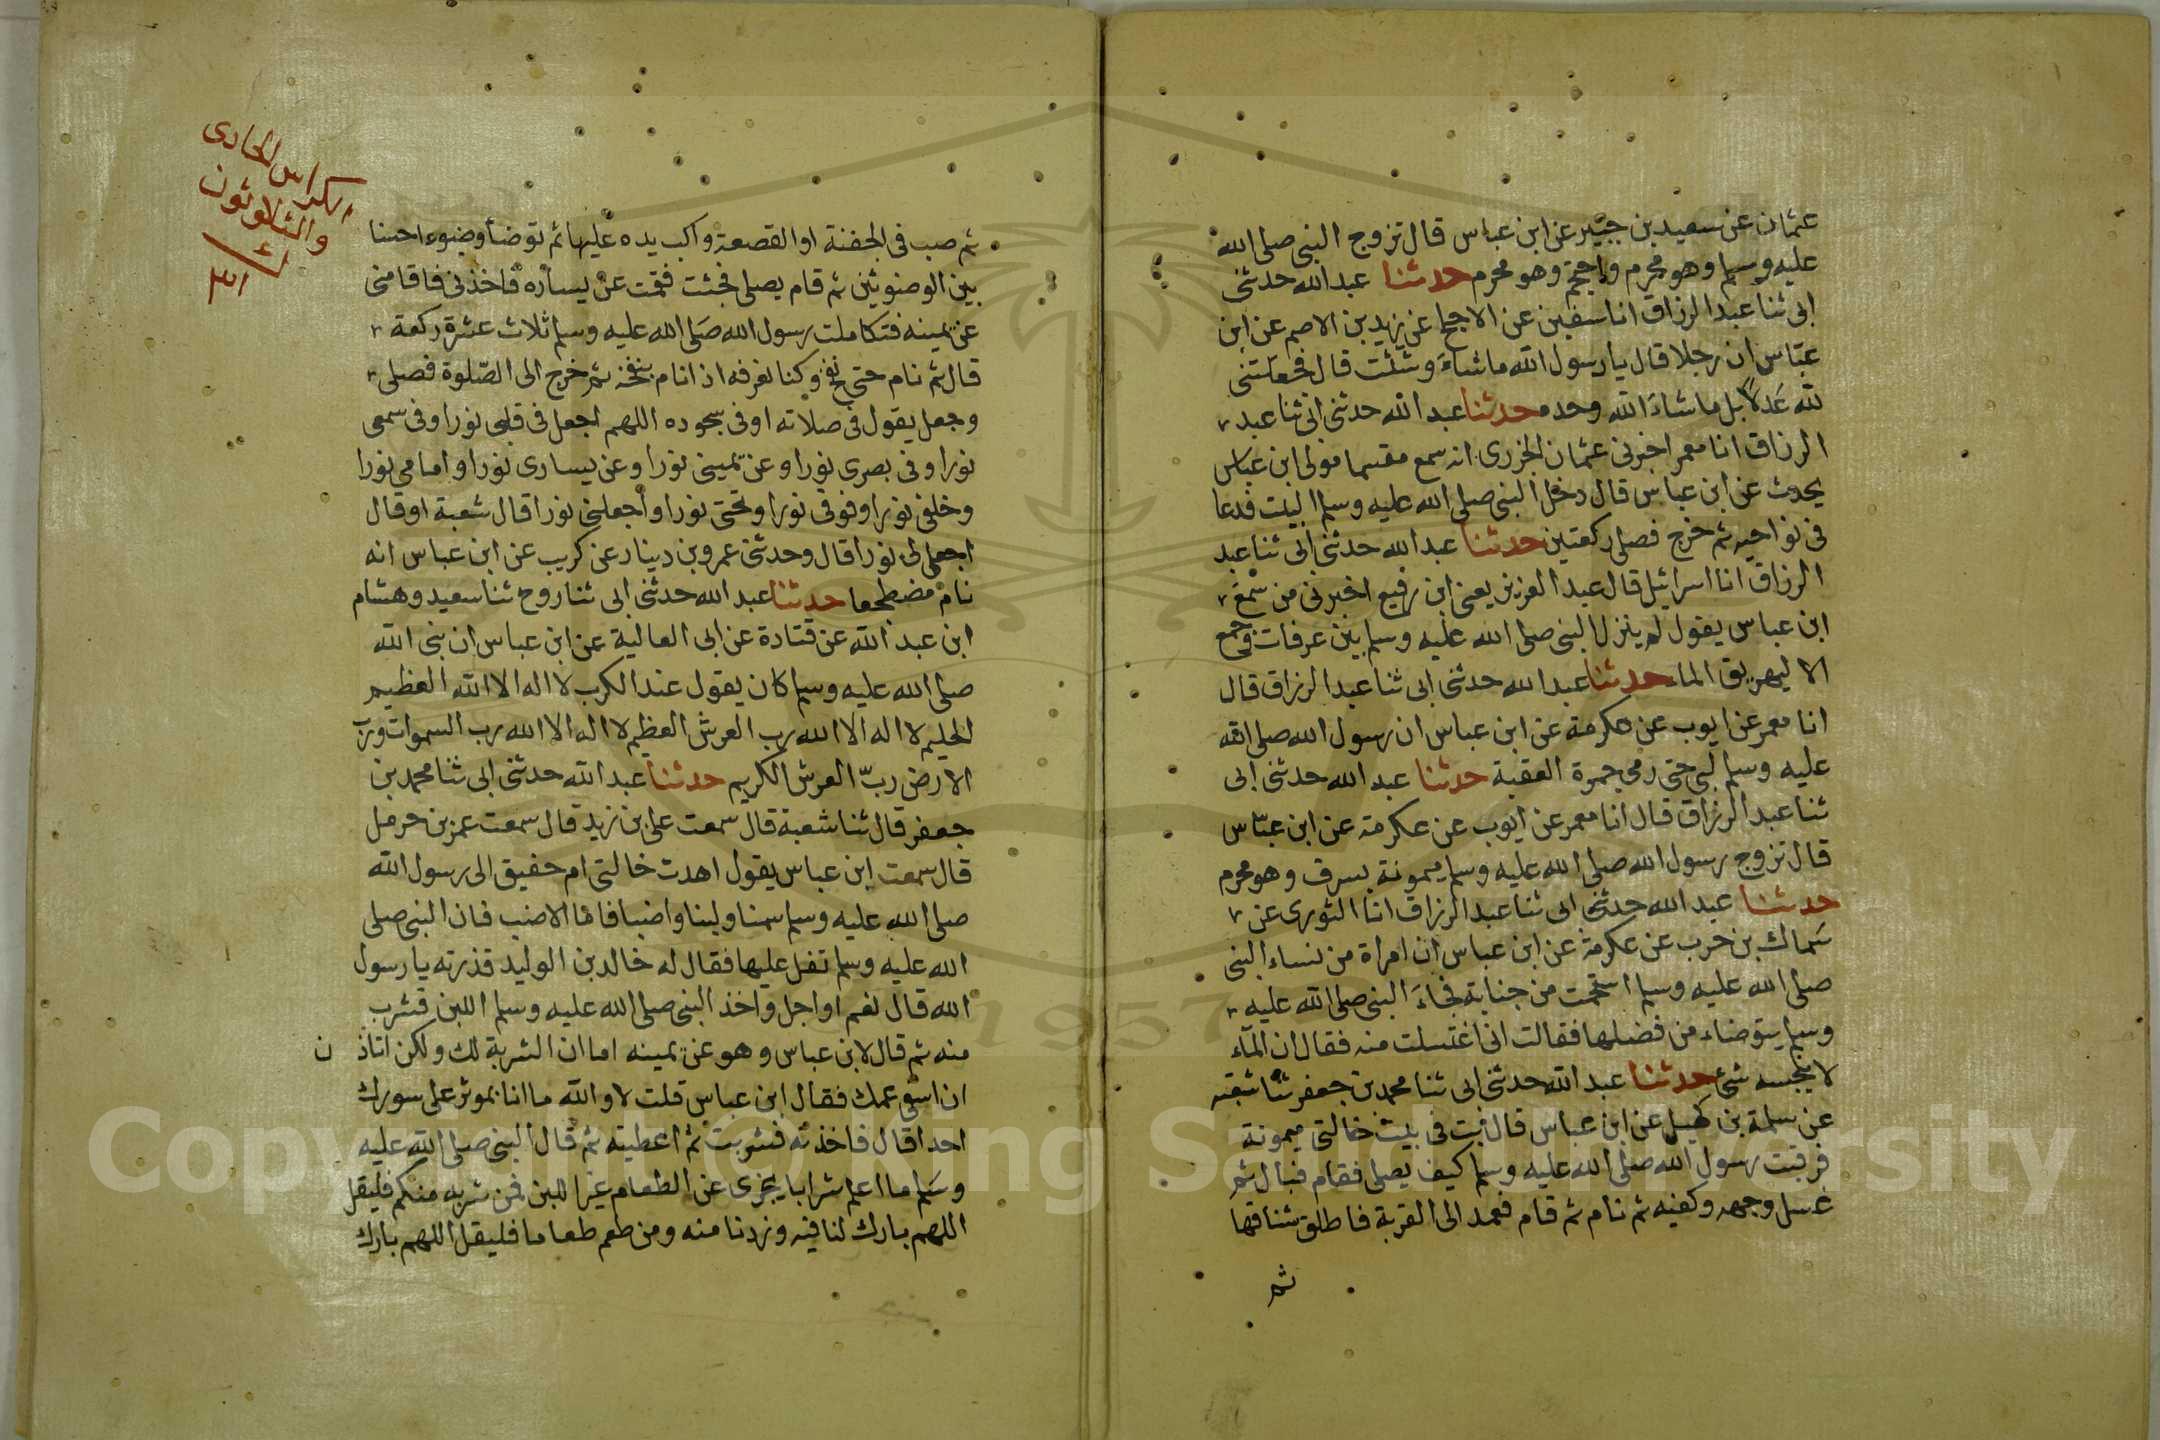 عثمان عن سعيد بن جبير عن ابن عباس قال تزوج النبى صلى الله
عليه وسلم وهو محرم واحتجم وهو محرم حدثنا عبد الله حدثنى
ابى ثنا عبد الرزاق انا سفين عن الاجلح عن يزيد بن الاصم عن ابن
عباس ان رجلا قال يا رسول الله ما شاء وشئت قال فجعلتنى
لله عدلا بل ما شاء الله وحده حدثنا عبد الله حدثنى ابى ثنا عبد
الرزاق انا معمر اخبرنى عثمان الجزرى انه سمع مقسما مولى ابن عباس
يحدث عن ابن عباس قال دخل النبى صلى الله عليه وسلم البيت فدعا
فى نواحيه ثم خرج فصلى ركعتين حدثنا عبد الله حدثنى ابى ثنا عبد
الرزاق انا اسرائيل قال عبد العزيز يعنى ابن رفيع اخبرنى من سمع
ابن عباس يقول لم ينزل النبى صلى الله عليه وسلم بين عرفات وجمع
الا ليهريق الماء حدثنا عبد الله حدثنى ابى ثنا عبد الرزاق قال
انا معمر عن ايوب عن عكرمة عن ابن عباس ان رسول الله صلى الله
عليه وسلم لبى حتى رمى جمرة العقبة حدثنا عبد الله حدثنى ابى
ثنا عبد الرزاق قال انا معمر عن ايوب عن عكرمة عن ابن عباس
قال تزوج رسول الله صلى الله عليه وسلم ميمونة بسرف وهو محرم
حدثنا عبد الله حدثنى ابى ثنا عبد الرزاق انا الثورى عن
سماك بن حرب عن عكرمة عن ابن عباس ان امراة من نساء النبى
صلى الله عليه وسلم استحمت من جنابة فجاء النبى صلى الله عليه
وسلم يتوضاء من فضلها فقالت انى اغتسلت منه فقال ان الماء
لا ينجسه شئ حدثنا عبد الله حدثنى ابى ثنا محمد بن جعفر ثنا شعبة
عن سلمة بن كهيل عن ابن عباس قال بت فى بيت خالتى ميمونة
فرقبت رسول الله صلى الله عليه وسلم كيف يصلى فقام فبال ثم
غسل وجهه وكفيه ثم نام ثم قام فعمد الى القربة فاطلق شناقها
ثم
الكراس الحادى
والثلاوثون
ثم صب فى الجفنة او القصعة واكب يده عليها ثم توضأ وضوءا حسنا
بين الوضوئين ثم قام يصلى فجئت فقمت عن يساره فاخذنى فاقامنى
عن يمينه فتكاملت رسول الله صلى الله عليه وسلم ثلاث عشرة ركعة
قال ثم نام حتى نفخ وكنا نعرفه اذا نام بنفخه ثم خرج الى الصلوة فصلى
وجعل يقول فى صلاته او فى سجوده اللهم اجعل فى قلبى نورا وفى سمعى
نورا وفى بصرى نورا وعن يمينى نورا وعن يسارى نورا وامامى نورا
وخلفى نورا وفوقى نورا وتحتى نورا واجعلنى نورا قال شعبة او قال
اجعل لى نورا قال وحدثنى عمرو بن دينار عن كريب عن ابن عباس انه
نام مضطجعا حدثنا عبد الله حدثنى ابى ثنا روح ثنا سعيد وهشام
ابن عبد الله عن قتادة عن ابى العالية عن ابن عباس ان نبى الله
صلى الله عليه وسلم كان يقول عند الكرب لا اله الا الله العظيم
الحليم لا اله الا الله رب العرش العظيم لا اله الا الله رب السموات ورب
الارض رب العرش الكريم حدثنا عبد الله حدثنى ابى ثنا محمد بن
جعفر قال ثنا شعبة قال سمعت على بن زيد قال سمعت عمر بن حرمل
قال سمعت ابن عباس يقول اهدت خالتى ام حفيق الى رسول الله
صلى الله عليه وسلم سمنا ولبنا واضبا فاما الاضب فان النبى صلى
الله عليه وسلم تفل عليها فقال له خالد بن الوليد قذرته يا رسول
الله قال نعم او اجل واخذ النبى صلى الله عليه وسلم اللبن فشرب
منه ثم قال لابن عباس وهو عن يمينه اما ان الشربة لك ولكن اتاذ ن
ان اسقى عمك فقال ابن عباس قلت لا والله ما انا بموثر على سورك
احدا قال فاخذته فشربت ثم اعطيته ثم قال النبى صلى الله عليه
وسلم ما اعلم شرابا يجزى عن الطعام غير اللبن فمن شربه منكم فليقل
اللهم بارك لنا فيه وزدنا منه ومن طعم طعاما فليقل اللهم بارك
1957
Copyright © King Saud University